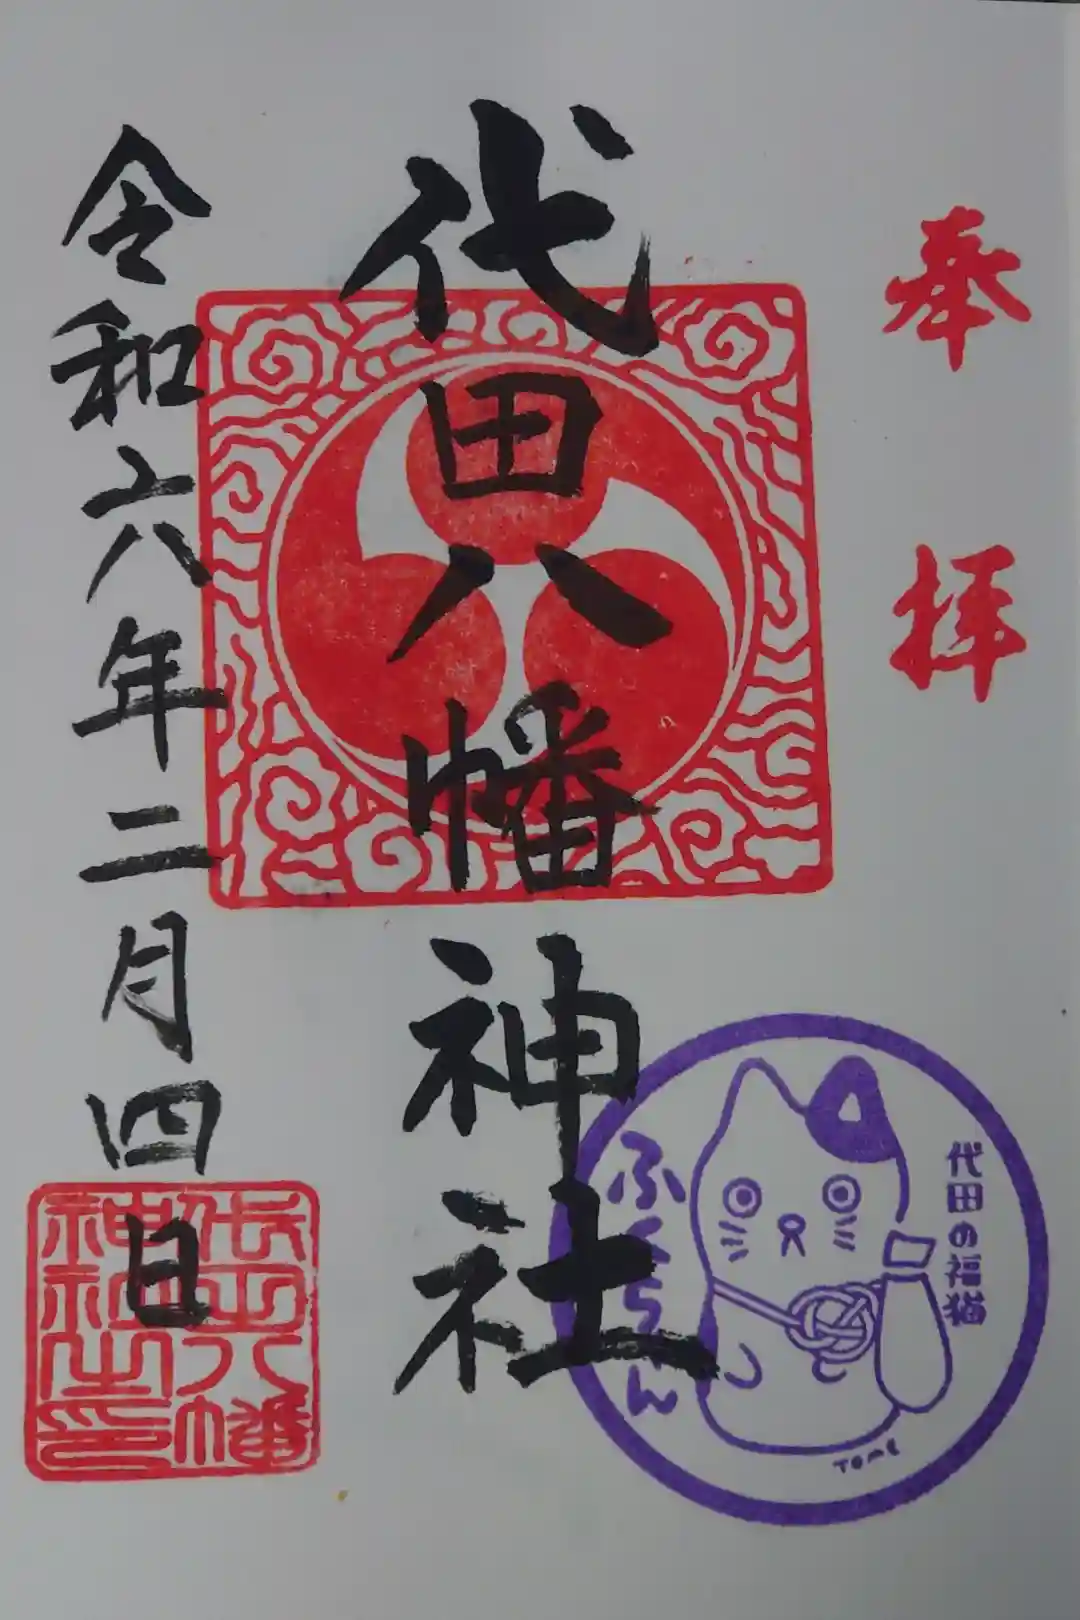 奉拝
代田八幡神社
令和六年二月四日
代田八幡
神社之印
代田の福猫
ふくちゃん
TOME